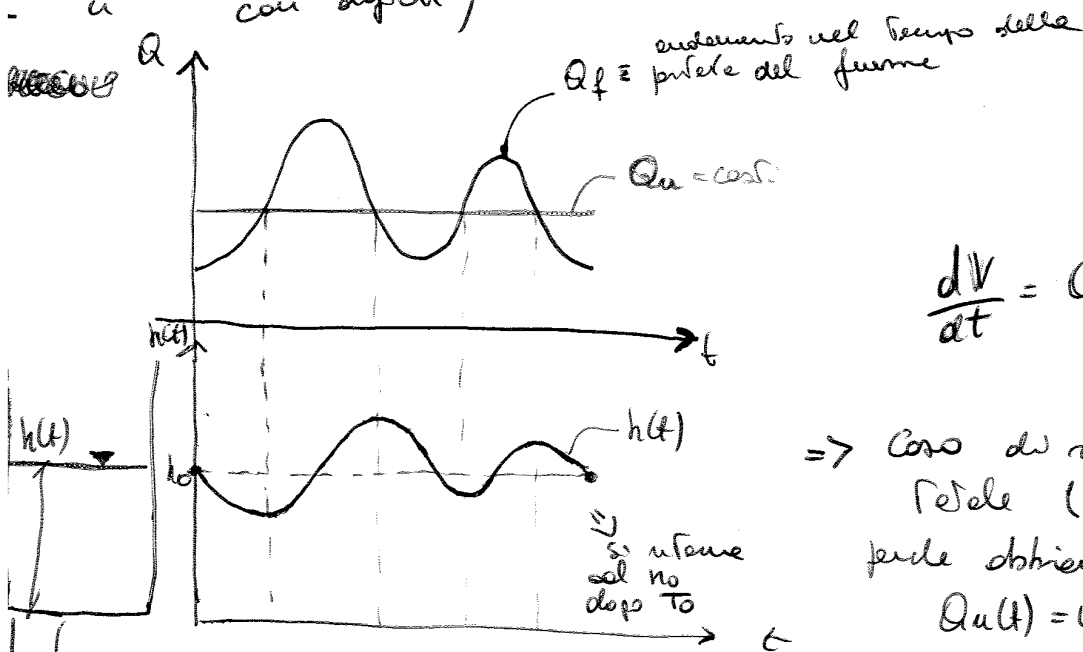 con
Q
andamento nel tempo della
Qf ≡ portata del fiume
Qu = cost.
dV/dt =
t
h(t)
h(t)
h(t)
h0
=> Caso di
Totale (
perché
Qu(t) =
=> si ritorna
ad h0
dopo T0
t